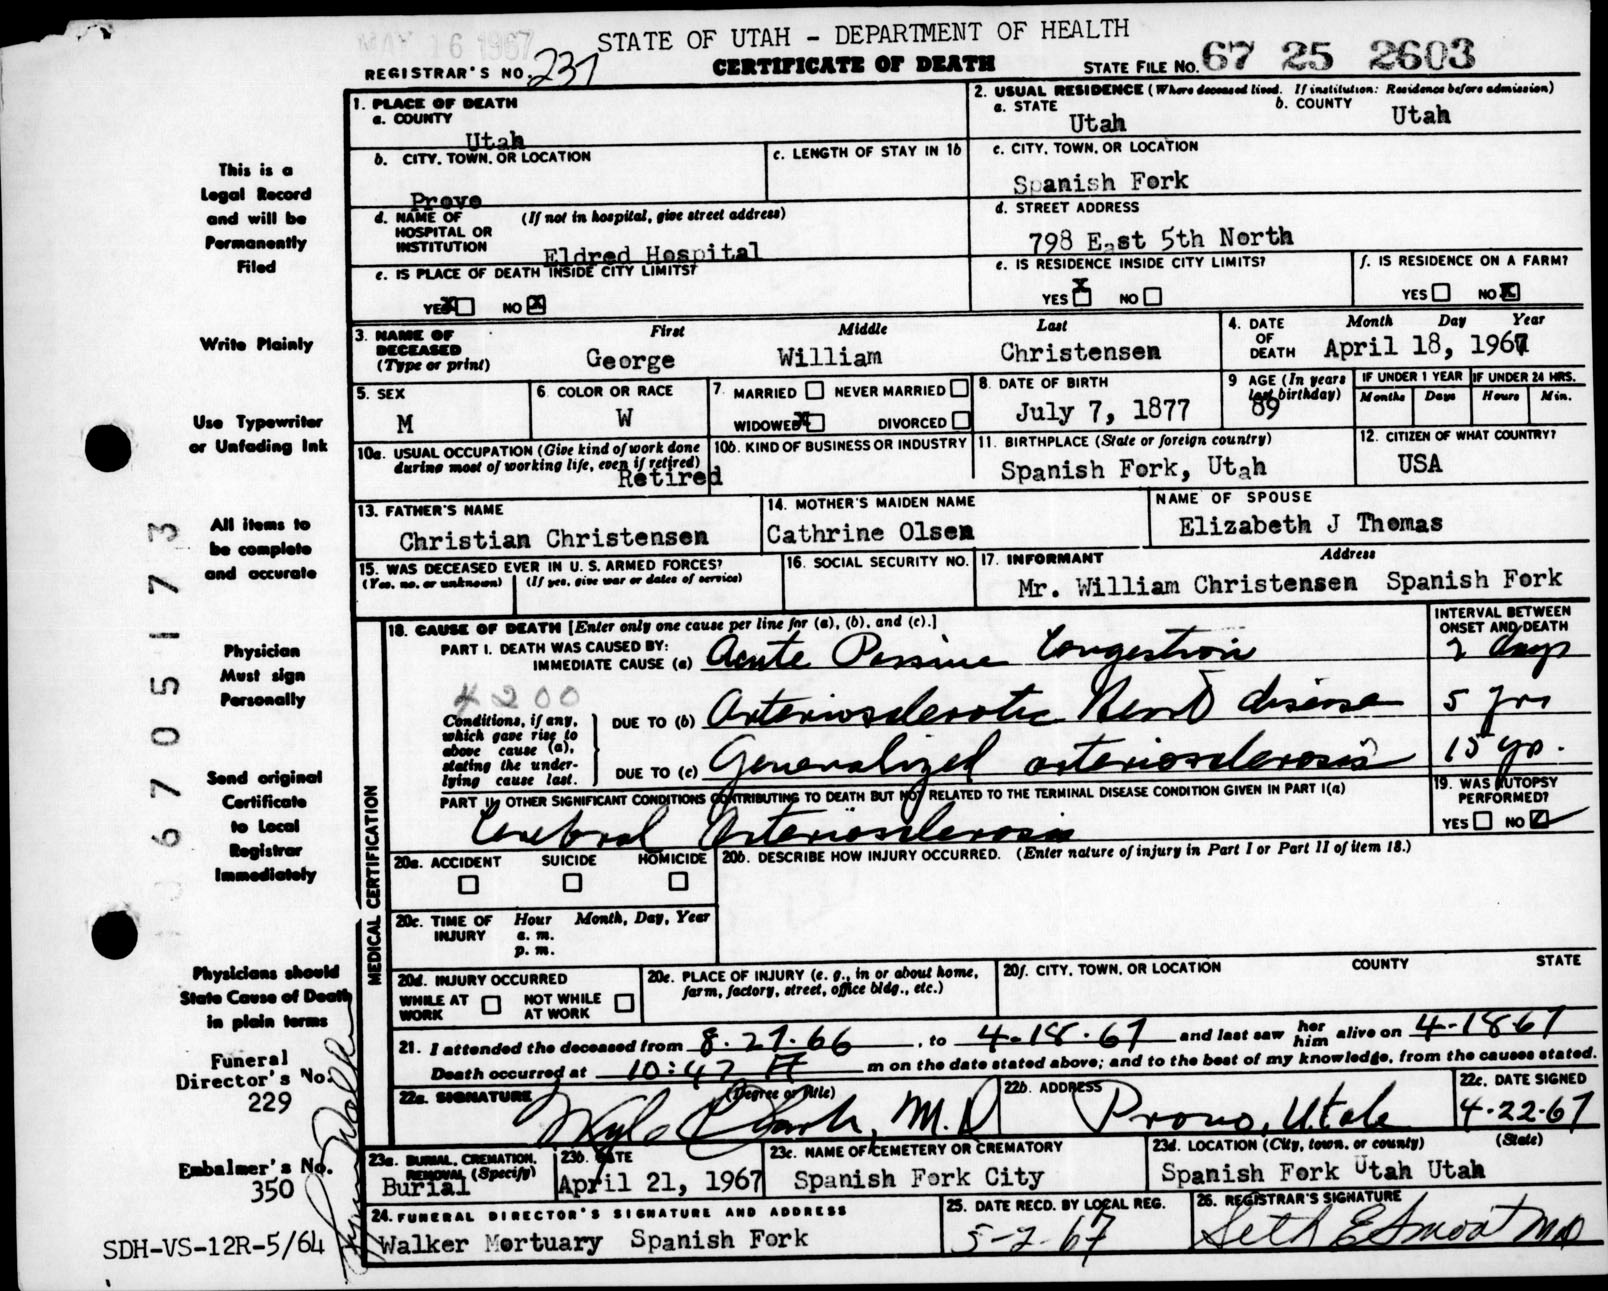 MAY 16 1967
STATE OF UTAH - DEPARTMENT OF HEALTH
REGISTRAR'S NO. 237
CERTIFICATE OF DEATH
STATE FILE NO. 67 25 2603
1. PLACE OF DEATH
a. COUNTY
Utah
2. USUAL RESIDENCE (Where deceased lived. If institution: Residence before admission)
a. STATE
Utah
b. COUNTY
Utah
b. CITY, TOWN, OR LOCATION
Provo
c. LENGTH OF STAY IN 1b
c. CITY, TOWN, OR LOCATION
Spanish Fork
d. NAME OF HOSPITAL OR INSTITUTION
(If not in hospital, give street address)
Eldred Hospital
d. STREET ADDRESS
798 East 5th North
e. IS PLACE OF DEATH INSIDE CITY LIMITS?
YES X NO X
e. IS RESIDENCE INSIDE CITY LIMITS?
YES X NO
f. IS RESIDENCE ON A FARM?
YES NO X
3. NAME OF DECEASED (Type or print)
First Middle Last
George William Christensen
4. DATE OF DEATH
Month Day Year
April 18, 1967
5. SEX
M
6. COLOR OR RACE
W
7. MARRIED NEVER MARRIED
WIDOWED X DIVORCED
8. DATE OF BIRTH
July 7, 1877
9 AGE (In years last birthday)
89
IF UNDER 1 YEAR
Months Days
IF UNDER 24 HRS.
Hours Min.
10a. USUAL OCCUPATION (Give kind of work done during most of working life, even if retired)
Retired
10b. KIND OF BUSINESS OR INDUSTRY
11. BIRTHPLACE (State or foreign country)
Spanish Fork, Utah
12. CITIZEN OF WHAT COUNTRY?
USA
13. FATHER'S NAME
Christian Christensen
14. MOTHER'S MAIDEN NAME
Cathrine Olsen
NAME OF SPOUSE
Elizabeth J Thomas
15. WAS DECEASED EVER IN U. S. ARMED FORCES?
(Yes, no, or unknown) (If yes, give war or dates of service)
16. SOCIAL SECURITY NO.
17. INFORMANT Address
Mr. William Christensen Spanish Fork
MEDICAL CERTIFICATION
18. CAUSE OF DEATH [Enter only one cause per line for (a), (b), and (c).]
INTERVAL BETWEEN ONSET AND DEATH
PART I. DEATH WAS CAUSED BY:
IMMEDIATE CAUSE (a) Acute Passive Congestion 2 days
4200
Conditions, if any, which gave rise to above cause (a), stating the underlying cause last.
DUE TO (b) Arteriosclerotic Heart disease 5 yrs
DUE TO (c) Generalized arteriosclerosis 15 yr.
PART II. OTHER SIGNIFICANT CONDITIONS CONTRIBUTING TO DEATH BUT NOT RELATED TO THE TERMINAL DISEASE CONDITION GIVEN IN PART I(a)
Cerebral Arteriosclerosis
19. WAS AUTOPSY PERFORMED?
YES NO
20a. ACCIDENT SUICIDE HOMICIDE
20b. DESCRIBE HOW INJURY OCCURRED. (Enter nature of injury in Part I or Part II of item 18.)
20c. TIME OF INJURY
Hour Month, Day, Year
a. m.
p. m.
20d. INJURY OCCURRED
WHILE AT WORK NOT WHILE AT WORK
20e. PLACE OF INJURY (e. g., in or about home, farm, factory, street, office bldg., etc.)
20f. CITY, TOWN, OR LOCATION COUNTY STATE
21. I attended the deceased from 8-27-66, to 4-18-67 and last saw her him alive on 4-18-67
Death occurred at 10:42 A m on the date stated above; and to the best of my knowledge, from the causes stated.
22a. SIGNATURE (Degree or title)
M.D
22b. ADDRESS
Provo, Utah
22c. DATE SIGNED
4-22-67
23a. BURIAL, CREMATION, REMOVAL (Specify)
Burial
23b. DATE
April 21, 1967
23c. NAME OF CEMETERY OR CREMATORY
Spanish Fork City
23d. LOCATION (City, town, or county) (State)
Spanish Fork Utah Utah
24. FUNERAL DIRECTOR'S SIGNATURE AND ADDRESS
Walker Mortuary Spanish Fork
25. DATE RECD. BY LOCAL REG.
5-2-67
26. REGISTRAR'S SIGNATURE
Seth E Smoot MD
This is a
Legal Record
and will be
Permanently
Filed
Write Plainly
Use Typewriter
or Unfading Ink
All items to
be complete
and accurate
Physician
Must sign
Personally
Send original
Certificate
to Local
Registrar
Immediately
Physicians should
State Cause of Death
in plain terms
Funeral
Director's No.
229
Embalmer's No.
350
SDH-VS-12R-5/64
67051773